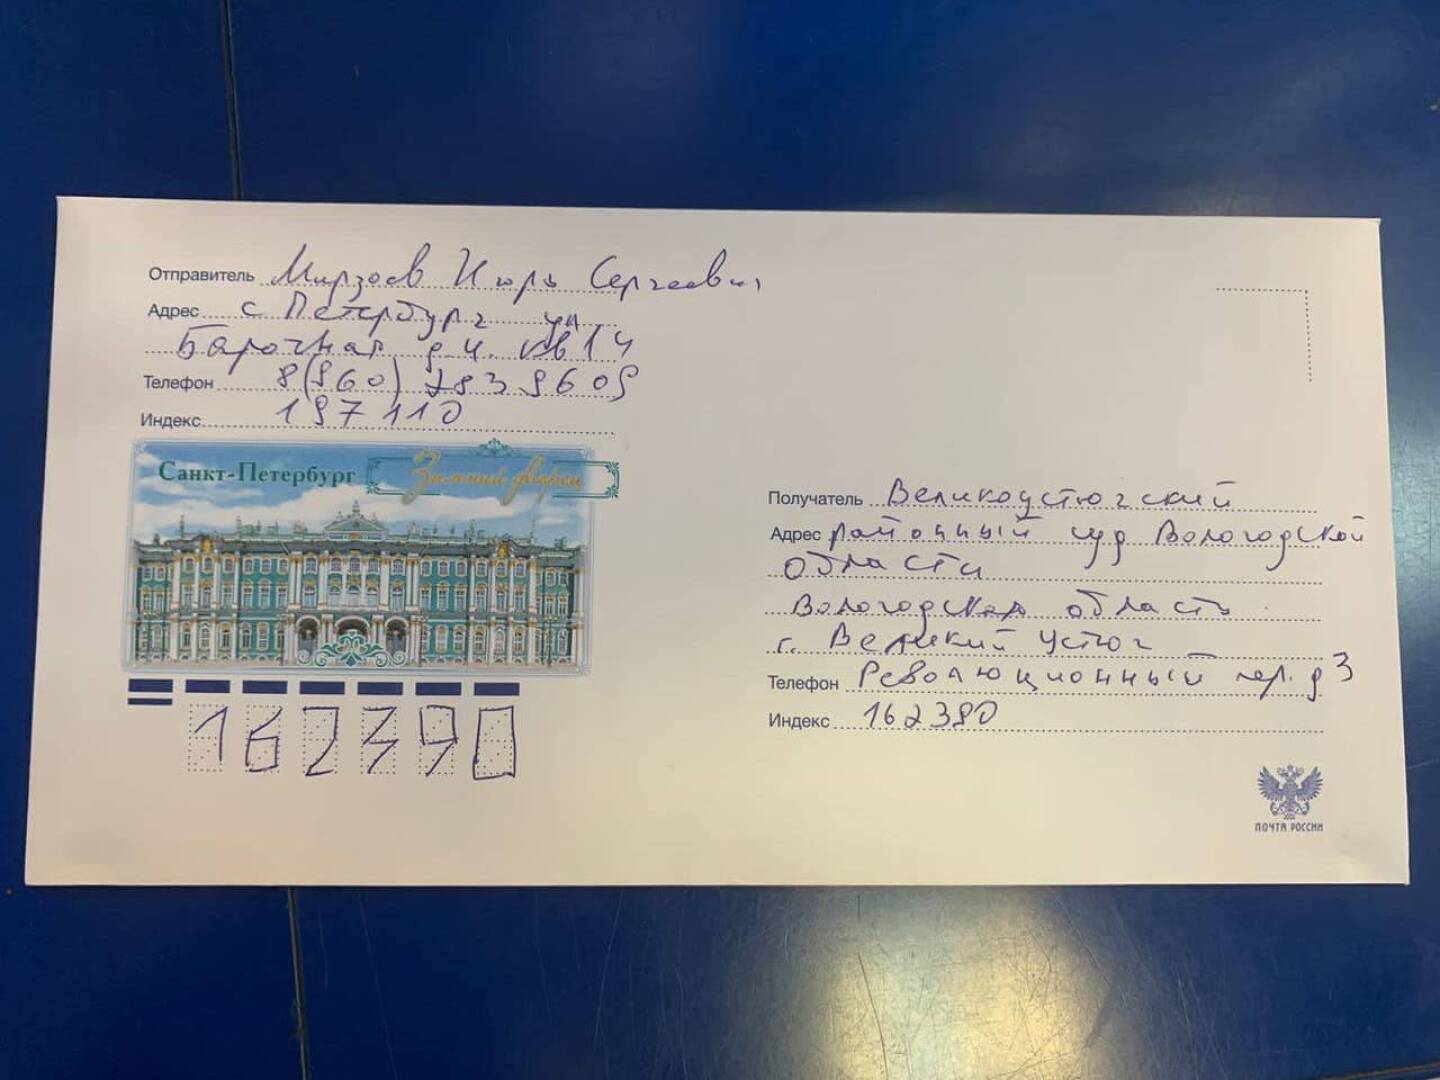 Отправитель Мирзоев Игорь Сергеевич
Адрес с Петербург ул
Барочная д 4. кв 14
Телефон 8(960) 2839609
Индекс 197110
Санкт-Петербург Зимний дворец
162390
Получатель Великоустюгский
Адрес районный суд Вологодской
области
Вологодская область
г. Великий Устюг
Телефон Революционный пер. д 3
Индекс 162390
ПОЧТА РОССИИ